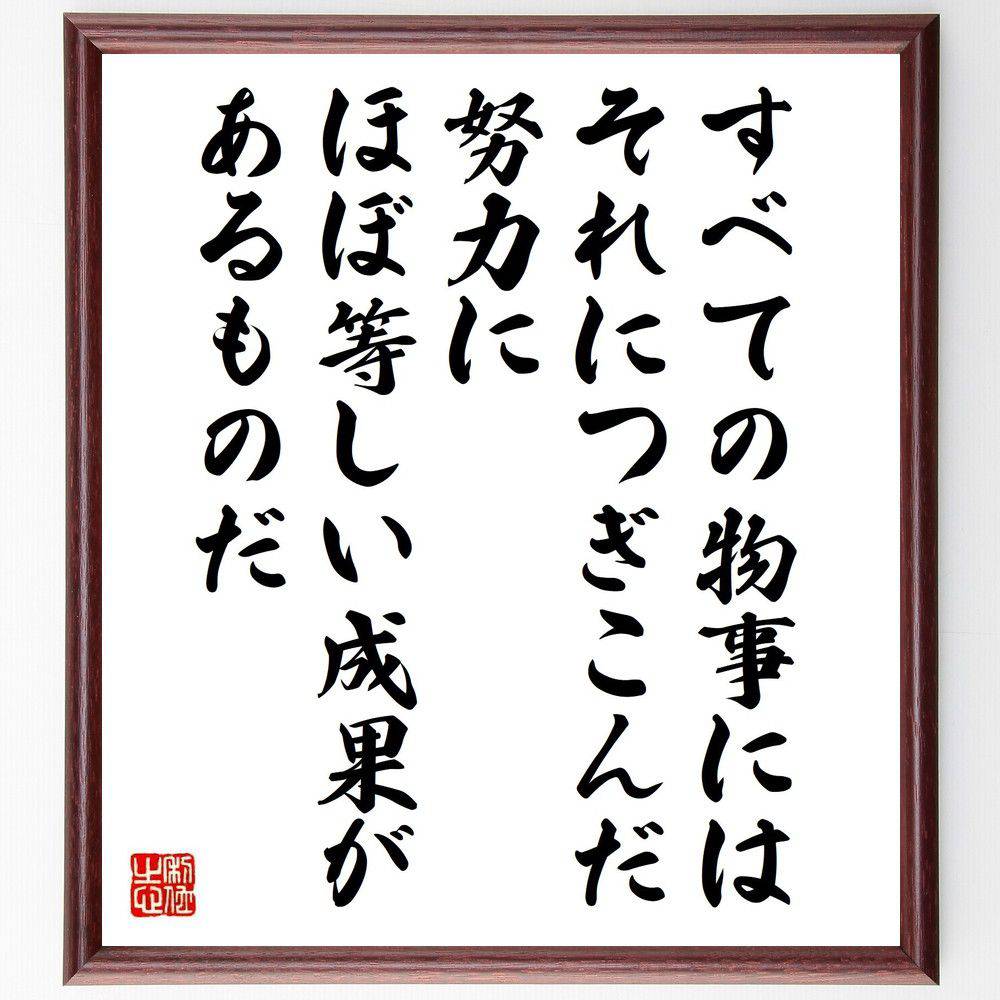 すべての物事には
それにつぎこんだ
努力に
ほぼ等しい成果が
あるものだ